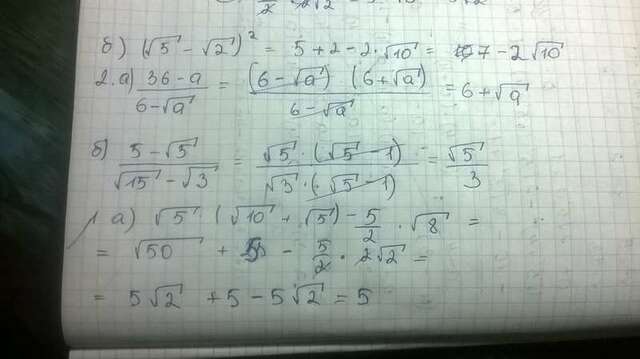 б) (√5 - √2)² = 5 + 2 - 2·√10 = 7 - 2√10
2. а) 36-a / 6-√a = (6-√a) (6+√a) / 6-√a = 6+√a
б) 5-√5 / √15-√3 = √5·(√5-1) / √3·(√5-1) = √5 / 3
1. а) √5·(√10 + √5) - 5/2 · √8 =
= √50 + 5 - 5/2 · 2√2 =
= 5√2 + 5 - 5√2 = 5